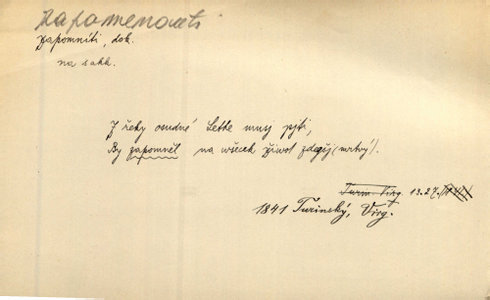 zapomenouti
Zapomníti, dok.
na sakk.
Z řeky osudné Lethe musj pjti,
By zapomněl na wšecek žiwot zdegšj (mrtvý).
Turin. Virg. 13.27.
1841 Turinský, Virg.